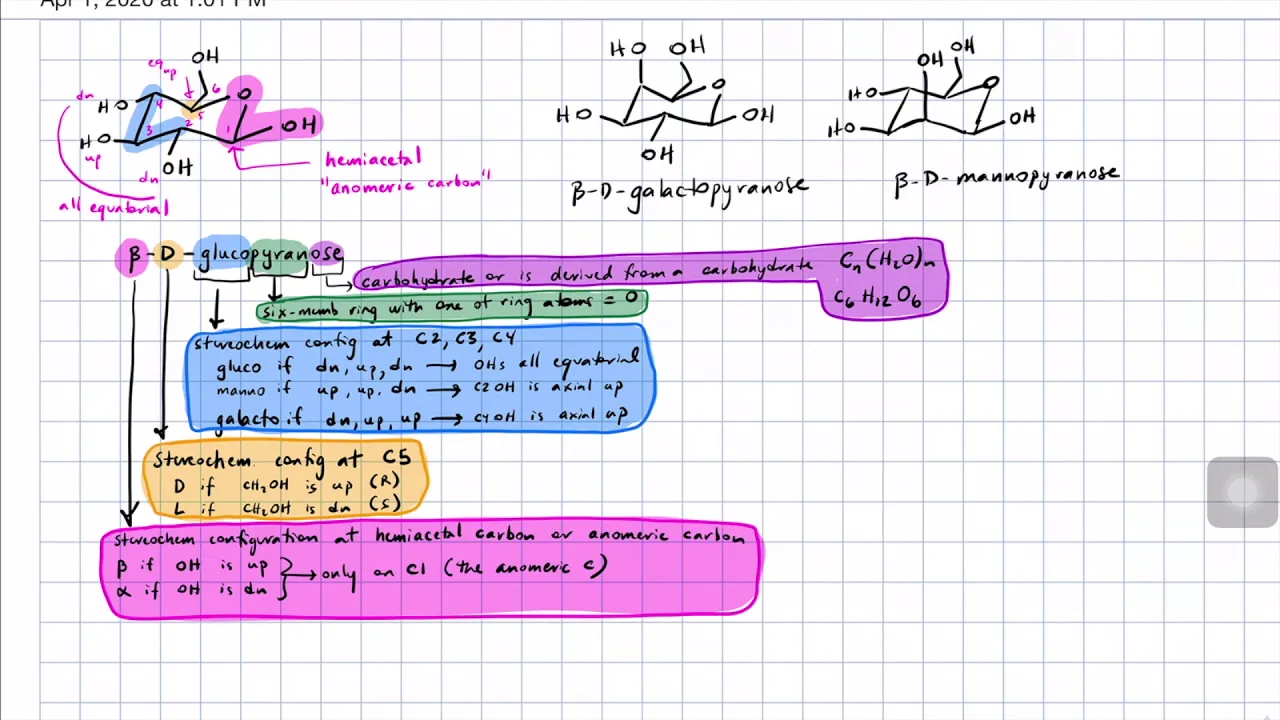 Apr 1, 2020 at 1:01 PM
OH
eq
up
6
O
dn
HO
4
5
OH
HO
3
2
1
up
OH
dn
hemiacetal
"anomeric carbon"
all equatorial
HO OH
O
HO
OH
OH
β-D-galactopyranose
OH
OH
HO
O
HO
OH
β-D-mannopyranose
β-D-glucopyranose
carbohydrate or is derived from a carbohydrate Cn(H2O)n
C6H12O6
six-memb ring with one of ring atoms = O
stereochem config at C2, C3, C4
gluco if dn, up, dn → OHs all equatorial
manno if up, up, dn → C2 OH is axial up
galacto if dn, up, up → C4 OH is axial up
Stereochem. config at C5
D if CH2OH is up (R)
L if CH2OH is dn (S)
Stereochem configuration at hemiacetal carbon or anomeric carbon
β if OH is up
α if OH is dn
→ only on C1 (the anomeric C)